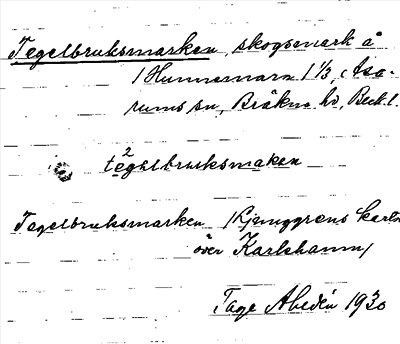 Tegelbruksmarken, skogsmark å
Hunnemara 1 1/3, Asa-
rums sn, Bräkne hd, Blek. l.
te2gelbruksmaken
Tegelbruksmarken (Ljunggrens karta
över Karlshamn)
Tage Ahldén 1930